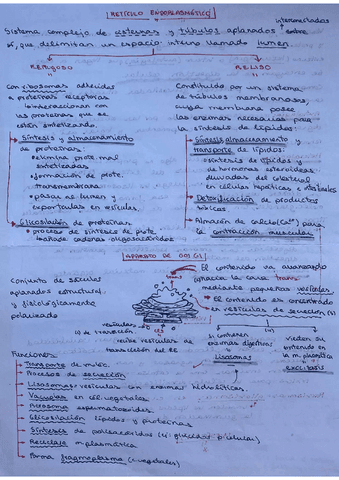 RETÍCULO ENDOPLASMÁTICO
interconectados
Sistema complejo de cisternas y túbulos aplanados, entre
sí, que delimitan un espacio interno llamado lumen
R.E.RUGOSO
R.E.LISO
Con ribosomas adheridos
a proteínas receptoras
interaccionan con
las proteínas que se
están sintetizando.
Síntesis y almacenamiento
de proteínas:
elimina prote. mal
sintetizadas
formación de prote.
transmembrana
pasar al lumen y
exportarlas en vesículas.
Glicosilación de proteínas
proceso de síntesis de prote.
cadenas oligosacáridos
Constituido por un sistema
de túbulos membranosos,
cuya membrana posee
las enzimas necesarias para
la síntesis de lípidos.
Síntesis, almacenamiento y
transporte de lípidos.
síntesis de lípidos y
de hormonas esteroideas
derivadas del colesterol
en células hepáticas e intestinales
Detoxificación de productos
tóxicos
Almacén de calcio (Ca²⁺) para
la contracción muscular
APARATO DE GOLGI
Conjunto de sáculos
aplanados estructural.
y fisiológicamente
polarizado
El contenido va avanzando
hacia la cara trans
mediante pequeñas vesículas
El contenido es concentrado
en vesículas de secreción (s)
vesículas
de transición
cis
recibe vesículas de
transición del RE
si contienen
enzimas digestivas
Lisosomas
vierten su
contenido en
la m. plasmática
exocitosis
Funciones:
Transporte de molec.
Procesos de secreción
Lisosomas: vesículas con enzimas hidrolíticas.
Vacuolas en cél. vegetales
Acrosoma espermatozoides.
Glicosilación lípidos y proteínas
Síntesis de polisacáridos
Reciclaje m. plasmática
Forma fragmoplasma (c. vegetales)